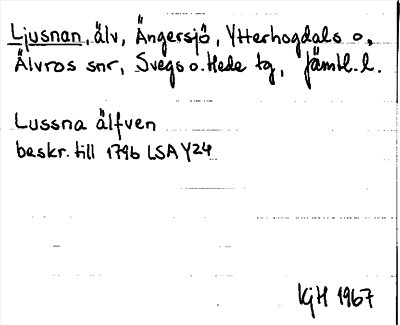 Ljusnan, älv, Ängersjö, Ytterhogdals o.
Älvros snr, Svegs o. Hede tg, Jämtl. l.
Lussna älfven
beskr. till 1796 LSA Y24
KgH 1967